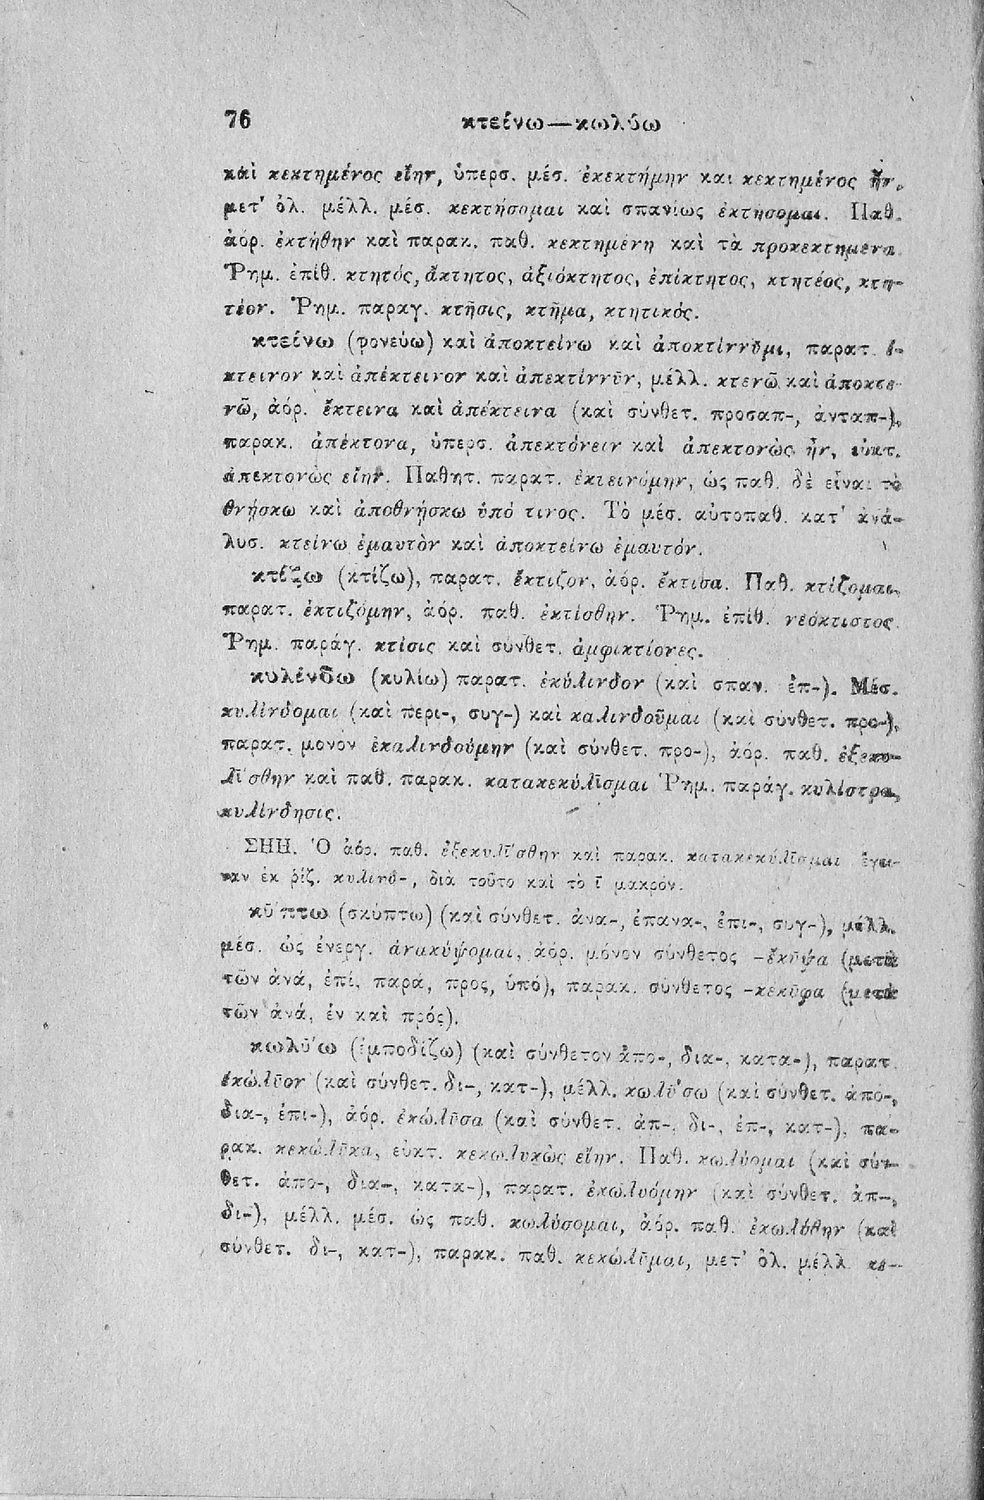 76 κτείνω — κωλύω
καὶ κεκτημένος εἴην, ὑπερσ. μέσ. ἐκεκτήμην και κεκτημένος ἦν,
μετ' ὀλ. μέλλ. μέσ. κεκτήσομαι καὶ σπανίως ἐκτήσομαι. Παθ.
ἀόρ. ἐκτήθην καὶ παρακ. παθ. κεκτημένη καὶ τὰ προκεκτημενα
Ῥημ. ἐπίθ. κτητός, ἄκτητος, ἀξιόκτητος, ἐπίκτητος, κτητέος, κτη-
τέον. Ῥημ. παραγ. κτῆσις, κτῆμα, κτητικός.
κτείνω (φονεύω) καὶ ἀποκτείνω καὶ ἀποκτίννῡμι, παρατ. ἔ-
κτεινον καὶ ἀπέκτεινον καὶ ἀπεκτίννῡν, μέλλ. κτενῶ καὶ ἀποκτε
νῶ, ἀόρ. ἔκτεινα καὶ ἀπέκτεινα (καὶ σύνθετ. προσαπ-, ἀνταπ-),
παρακ. ἀπέκτονα, ὑπερσ. ἀπεκτόνειν καὶ ἀπεκτονὼς ἦν, εὐκτ.
ἀπεκτονὼς εἴην. Παθητ. παρατ. ἐκτεινόμην, ὡς παθ. δὲ εἶναι τὸ
θνῄσκω καὶ ἀποθνῄσκω ὑπό τινος. Τὸ μέσ. αὐτοπαθ. κατ' ἀνά-
λυσ. κτείνω ἐμαυτὸν καὶ ἀποκτείνω ἐμαυτόν.
κτίζω (κτίζω), παρατ. ἔκτιζον, ἀόρ. ἔκτισα. Παθ. κτίζομαι,
παρατ. ἐκτιζόμην, ἀόρ. παθ. ἐκτίσθην. Ῥημ. ἐπίθ. νεόκτιστος
Ῥημ. παράγ. κτίσις καὶ σύνθετ. ἀμφικτίονες.
κυλίνδω (κυλίω) παρατ. ἐκύλινδον (καὶ σπαν. ἐπ-). Μέσ.
κυλίνδομαι (καὶ περι-, συγ-) καὶ καλινδοῦμαι (καὶ σύνθετ. προ-),
παρατ. μονον ἐκαλινδούμην (καὶ σύνθετ. προ-), ἀόρ. παθ. ἐξεκυ-
λῑ́σθην καὶ παθ. παρακ. κατακεκύλῑσμαι Ῥημ. παράγ. κυλίστρα,
κυλίνδησις.
ΣΗΗ. Ὁ ἀόρ. παθ. ἐξεκυλῑ́σθην καὶ παρακ. κατακεκύλῑσμαι ἔγει-
ναν ἐκ ῥίζ. κυλινδ-, διὰ τοῦτο καὶ τὸ ῑ μακρόν.
κῡ́πτω (σκύπτω) (καὶ σύνθετ. ἀνα-, ἐπανα-, ἐπι-, συγ-), μέλλ.
μέσ. ὡς ἐνεργ. ἀνακύψομαι, ἀόρ. μόνον σύνθετος -έκῡψα (μετὰ
τῶν ἀνά, ἐπί, παρά, προς, ὑπό), παρακ. σύνθετος -κέκῡφα (μετὰ
τῶν ἀνά, ἐν καὶ πρός).
κωλῡ́ω (ἐμποδίζω) (καὶ σύνθετον ἀπο-, δια-, κατα-), παρατ.
ἐκώλῡον (καὶ σύνθετ. δι-, κατ-), μέλλ. κωλῡ́σω (καὶ σύνθετ. ἀπο-,
δια-, ἐπι-), ἀόρ. ἐκώλῡσα (καὶ σύνθετ. ἀπ-, δι-, ἐπ-, κατ-), πα-
ρακ. κεκώλῡκα, εὐκτ. κεκωλυκὼς εἴην. Παθ. κωλύομαι (καὶ σύν-
θετ. ἀπο-, δια-, κατα-), παρατ. ἐκωλυόμην (καὶ σύνθετ. ἀπ-,
δι-), μέλλ. μέσ. ὡς παθ. κωλύσομαι, ἀόρ. παθ. ἐκωλύθην (καὶ
σύνθετ. δι-, κατ-), παρακ. παθ. κεκώλῡμαι, μετ' ὀλ. μέλλ κε-